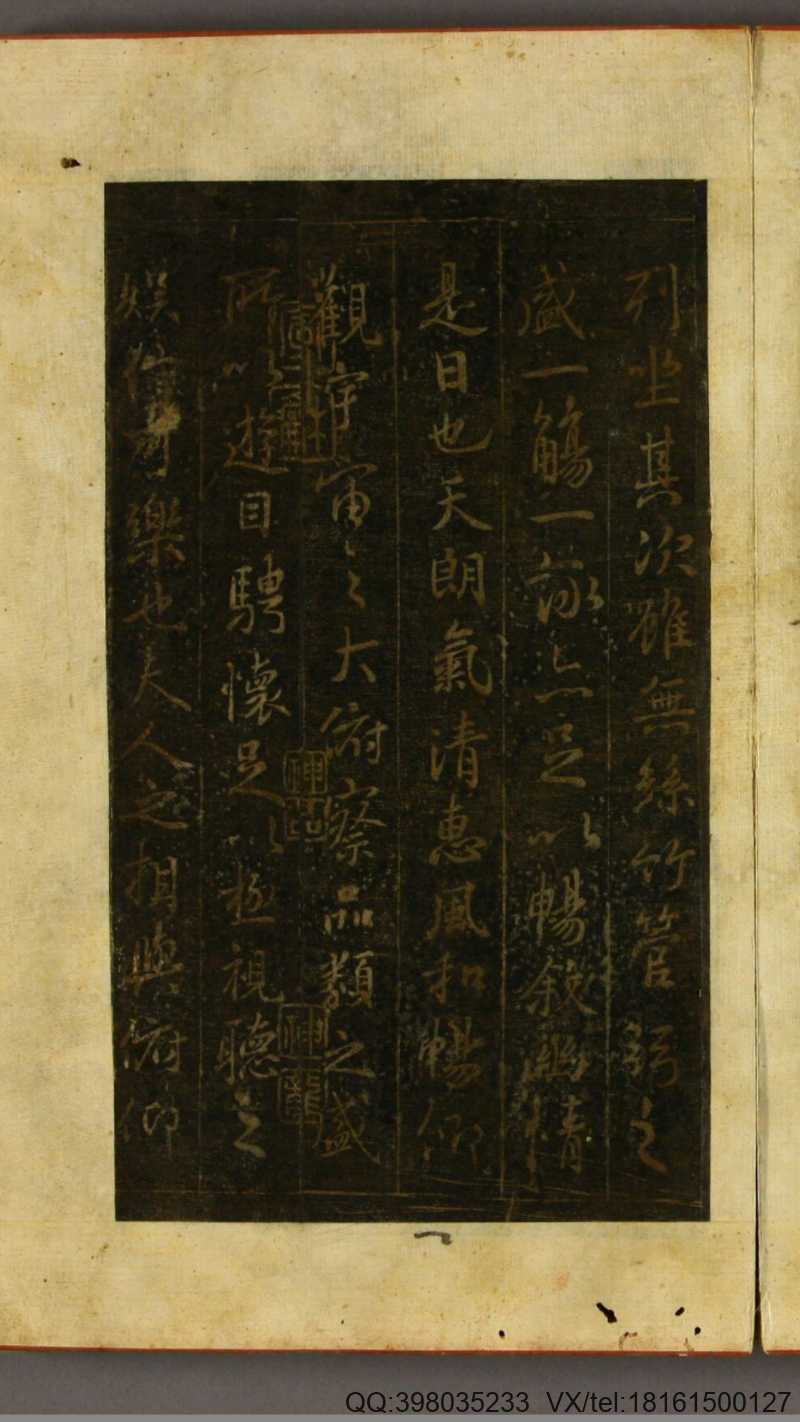 列坐其次雖無絲竹管弦之
盛一觴一詠亦足以暢敘幽情
是日也天朗氣清惠風和暢仰
觀宇宙之大俯察品類之盛
所以遊目騁懷足以極視聽之
娛信可樂也夫人之相與俯仰
神品
神龍
QQ:398035233 VX/tel:18161500127